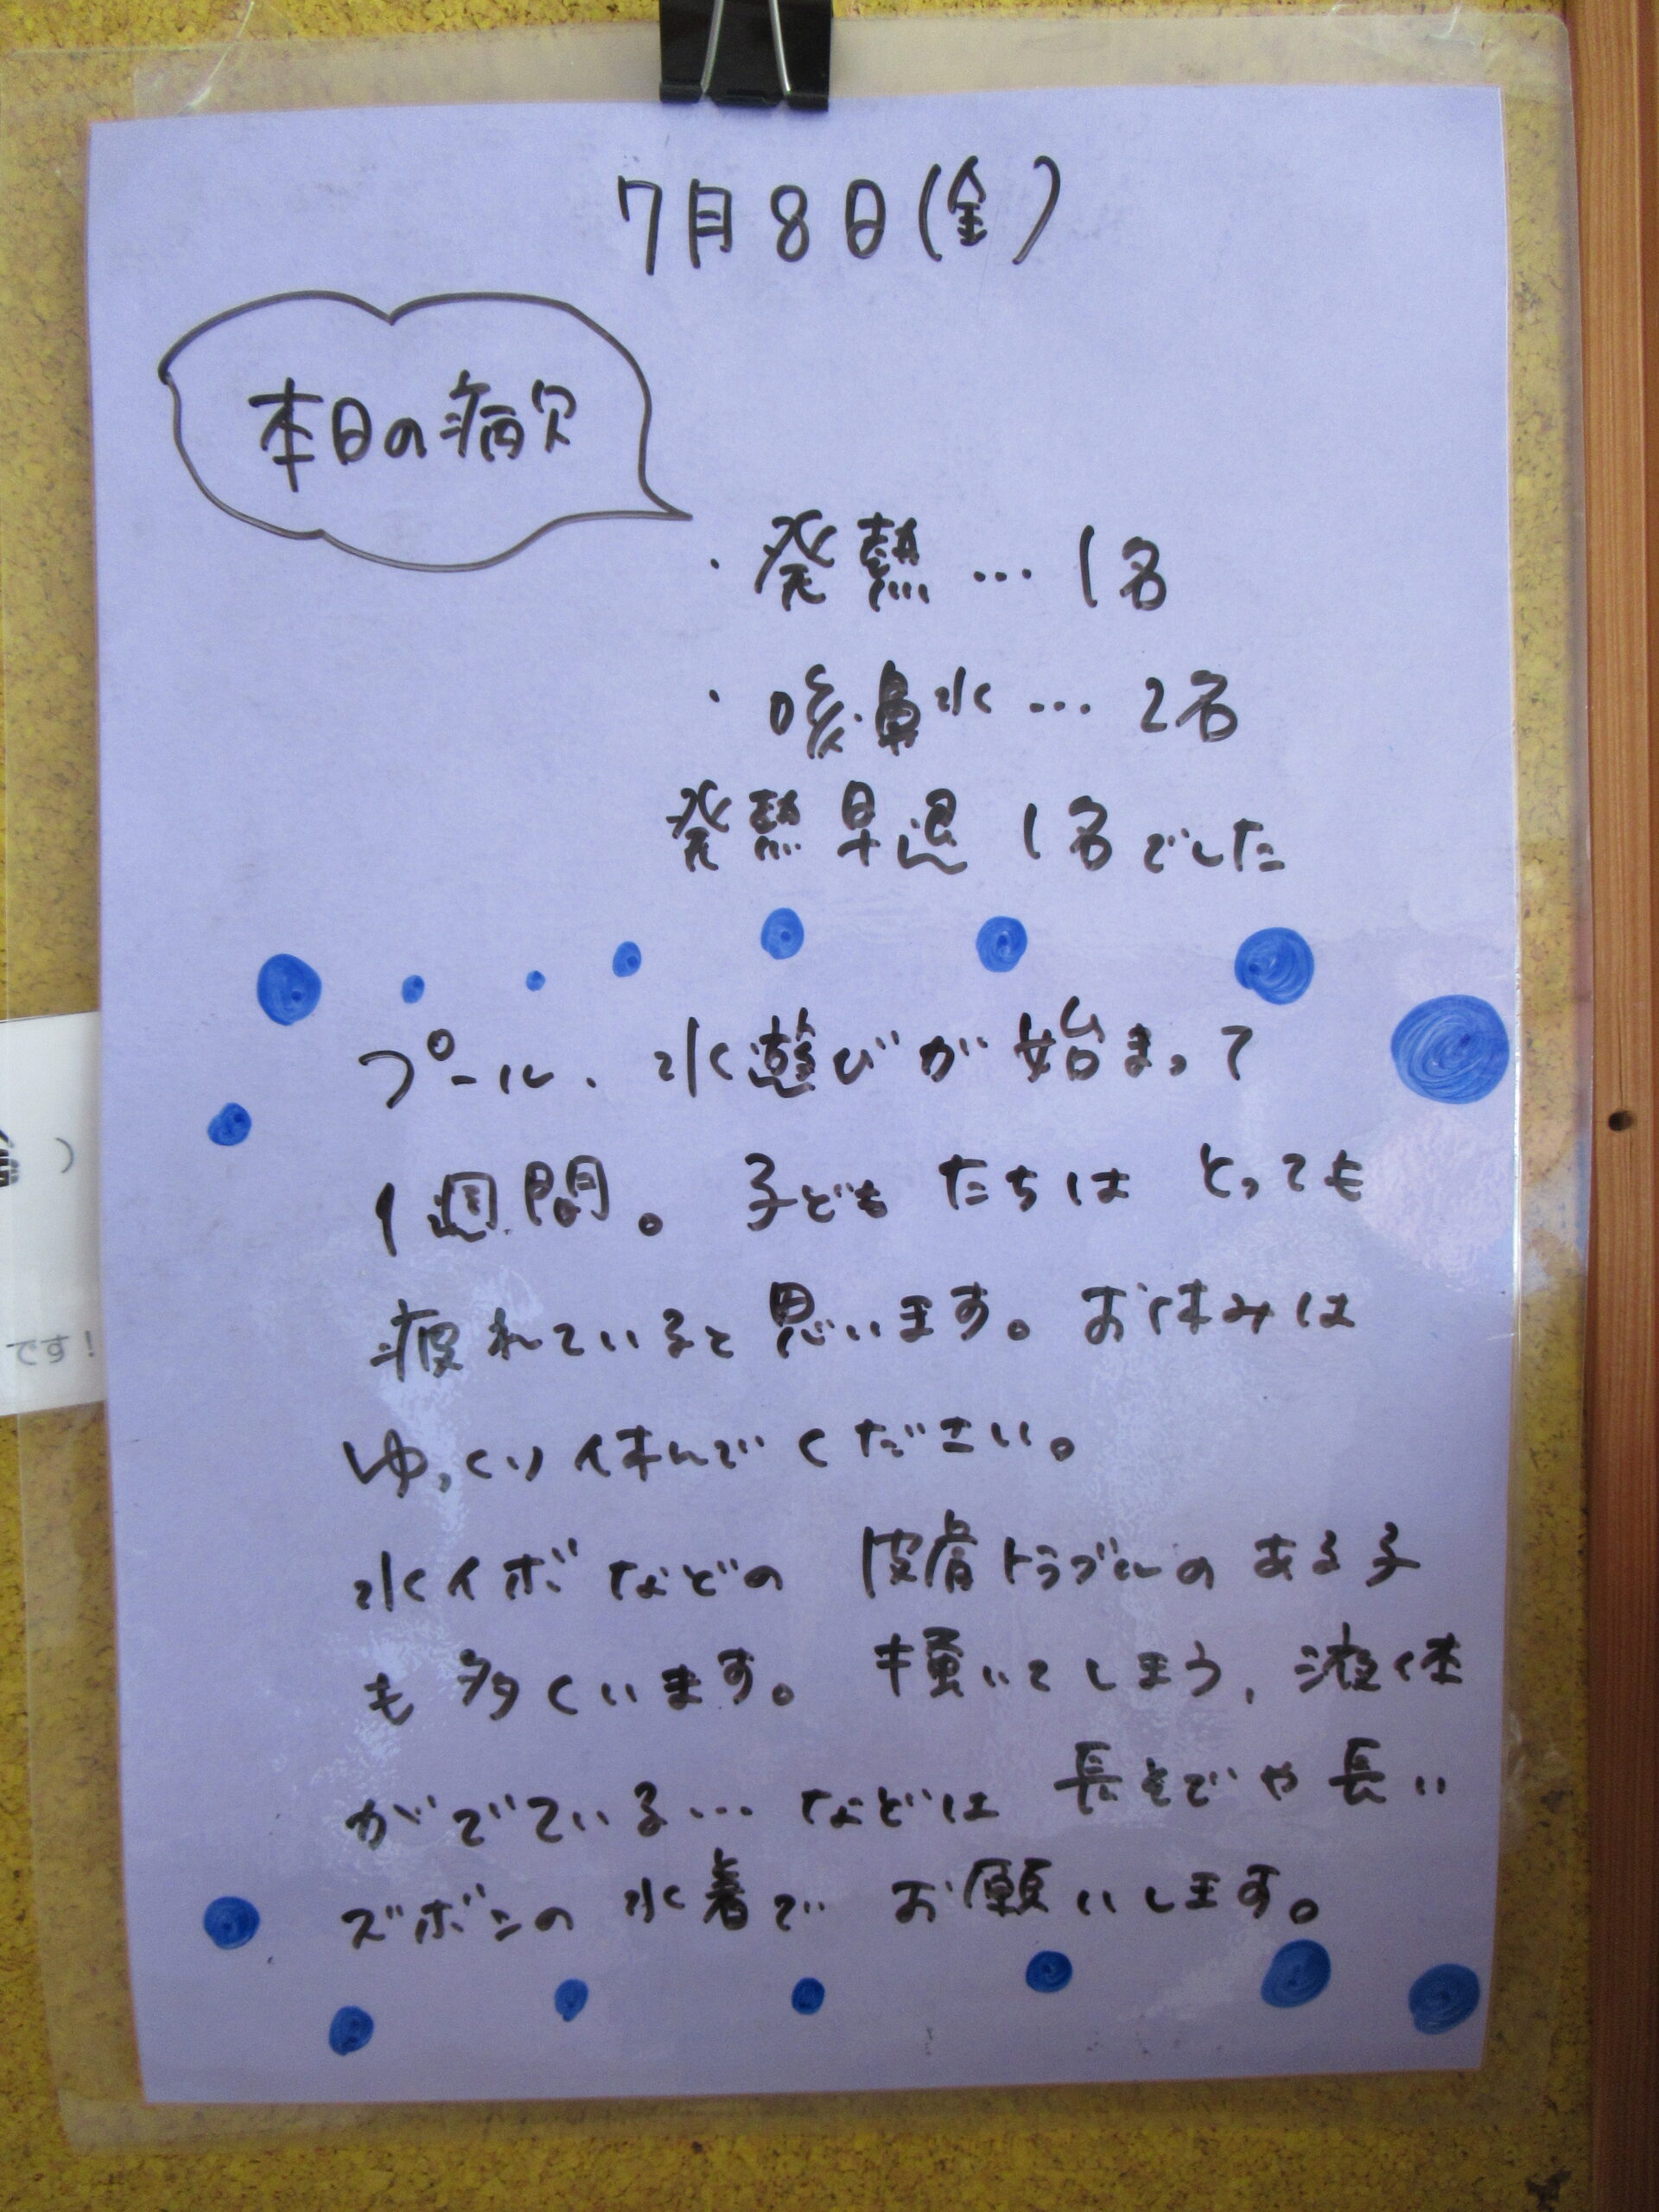 7月8日(金)
本日の病欠
・発熱…1名
・咳・鼻水…2名
発熱早退 1名でした
プール、水遊びが始まって
1週間。子どもたちは とっても
疲れていると思います。お休みは
ゆっくり休んでください。
水イボなどの 皮膚トラブルの ある子
も多くいます。掻いてしまう、液体
がでている…などは 長そでや長い
ズボンの水着で お願いします。
)
です!